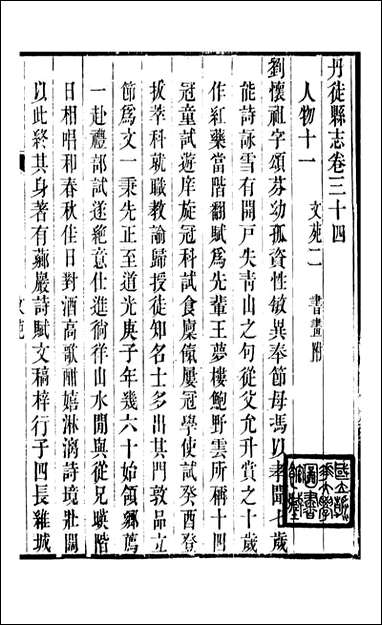 丹徒縣志卷三十四
人物十一
文苑二 書畫附
劉懷祖字頌芬幼孤資性敏異奉節母馮以孝聞七歲
能詩詠雪有開戸失青山之句從父允升賞之十歲
作紅藥當階翻賦爲先輩王夢樓鮑野雲所稱十四
冠童試遊庠旋冠科試食廩餼屢冠學使試癸酉登
拔萃科就職教諭歸授徒知名士多出其門敦品立
節爲文一秉先正至道光庚子年幾六十始領鄉薦
一赴禮部試遂絶意仕進徜徉山水閒與從兄瑛階
日相唱和春秋佳日對酒高歌酣嬉淋漓詩境壯闊
以此終其身著有薌巖詩賦文稿梓行子四長維城
文苑